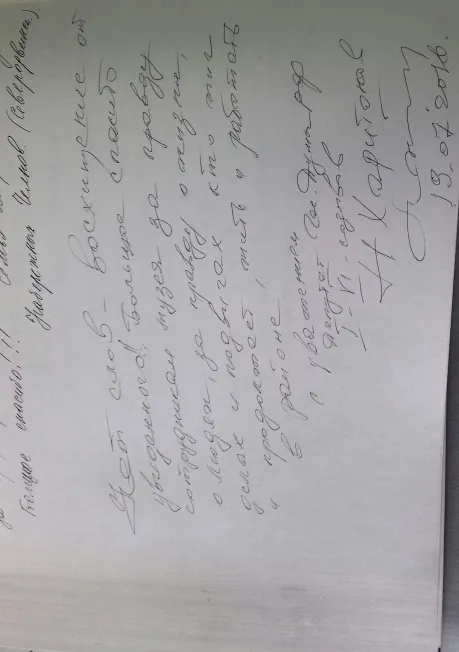 Большое спасибо!!! Семья
Набережных Челнов (Северодвинск).
Нет слов – восхищение от
увиденного! Большое спасибо
сотрудникам музея за правду
о людях, за правду о жизни,
делах и подвигах кто жил
и продолжает, жить и работать
в районе.
с уважением
депутат Гос. Думы РФ
I - VII созывов
Н Харитонов
19.07.2018.